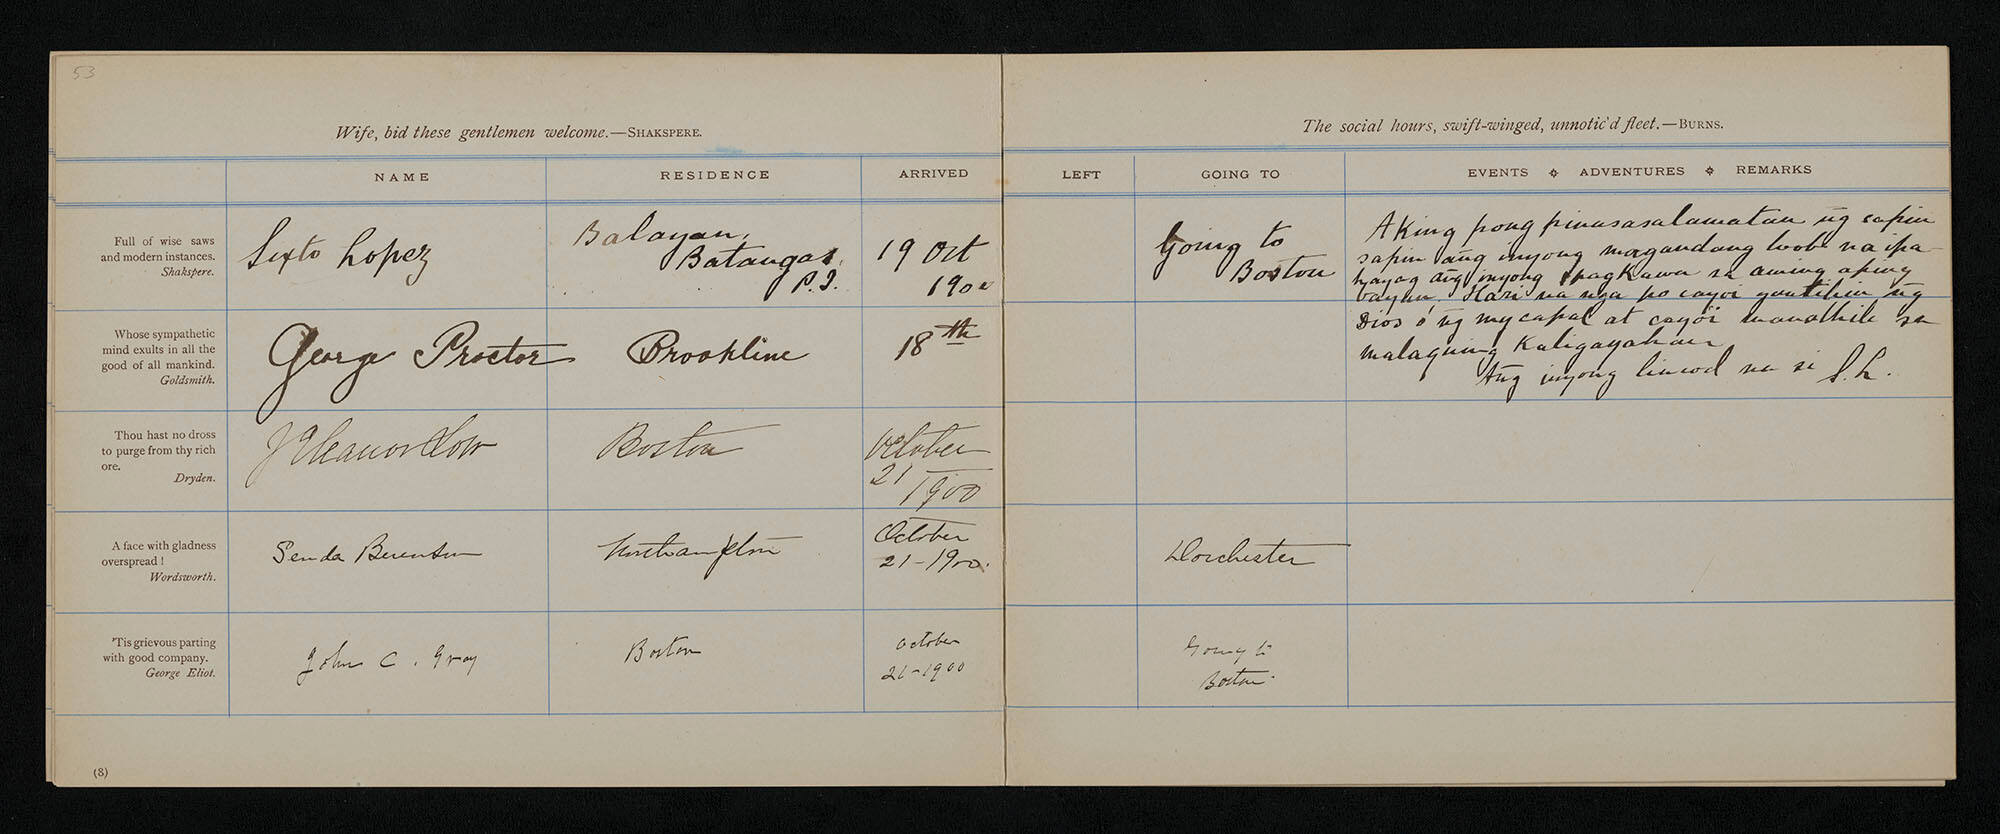 53
Wife, bid these gentlemen welcome.—SHAKSPERE.
NAME RESIDENCE ARRIVED
Full of wise saws
and modern instances.
Shakspere.
Sixto Lopez
Balayan,
Batangas,
P.I.
19 Oct
1900
Whose sympathetic
mind exults in all the
good of all mankind.
Goldsmith.
George Proctor
Brookline
18th
Thou hast no dross
to purge from thy rich
ore.
Dryden.
Boston
October
21
1900
A face with gladness
overspread!
Wordsworth.
Senda Berenson
Northampton
October
21-1900.
'Tis grievous parting
with good company.
George Eliot.
John C. Gray
Boston
October
21-1900
(8)
The social hours, swift-winged, unnotic'd fleet.—BURNS.
LEFT GOING TO EVENTS ADVENTURES REMARKS
Going to
Boston
Aking pong pinasasalamatan ng sapin
sapin ang inyong magandang loob na ipa-
hayag ang inyong pagkawa sa aming aping
bayan. Hari na nga po cayoi gantihin ng
Dios ó ng mycapal at cayoi manathili sa
malaguing Kaligayahan
Ang inyong lincod na si S.L.
Dorchester
Going to
Boston.